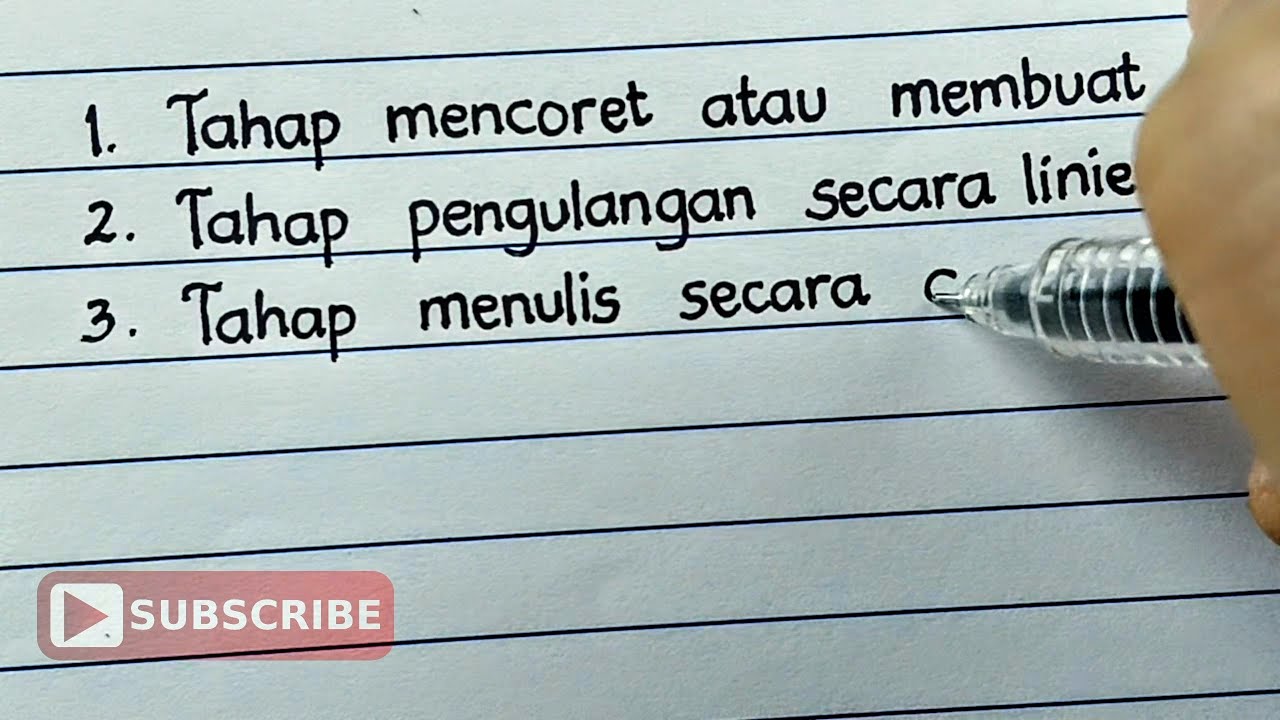 1. Tahap mencoret atau membuat
2. Tahap pengulangan secara linie
3. Tahap menulis secara
SUBSCRIBE